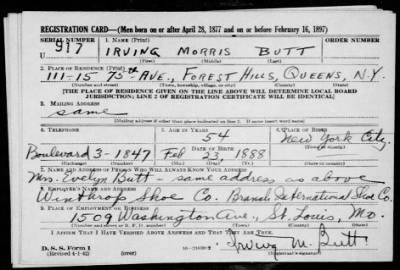 REGISTRATION CARD—(Men born on or after April 28, 1877 and on or before February 16, 1897)
SERIAL NUMBER 1. NAME (Print) ORDER NUMBER
U 917 IRVING MORRIS BUTT
(First) (Middle) (Last)
2. PLACE OF RESIDENCE (Print)
111-15 75th AVE., FOREST HILLS, QUEENS, N.Y.
(Number and street) (Town, township, village, or city) (County) (State)
[THE PLACE OF RESIDENCE GIVEN ON THE LINE ABOVE WILL DETERMINE LOCAL BOARD
JURISDICTION; LINE 2 OF REGISTRATION CERTIFICATE WILL BE IDENTICAL]
3. MAILING ADDRESS
same
[Mailing address if other than place indicated on line 2. If same insert word same]
4. TELEPHONE 5. AGE IN YEARS 6. PLACE OF BIRTH
54 New York City
DATE OF BIRTH
Boulevard 3-1847 Feb 23, 1888
(Exchange) (Number) (Mo.) (Day) (Yr.) (State or country)
7. NAME AND ADDRESS OF PERSON WHO WILL ALWAYS KNOW YOUR ADDRESS
Mrs. Evelyn Butt - same address as above
8. EMPLOYER'S NAME AND ADDRESS
Winthrop Shoe Co. Branch International Shoe Co.
9. PLACE OF EMPLOYMENT OR BUSINESS
1509 Washington Ave., St. Louis, Mo.
(Number and street or R. F. D. number) (Town) (County) (State)
I AFFIRM THAT I HAVE VERIFIED ABOVE ANSWERS AND THAT THEY ARE TRUE.
D. S. S. Form 1
(Revised 4-1-42) (over) Irving M. Butt